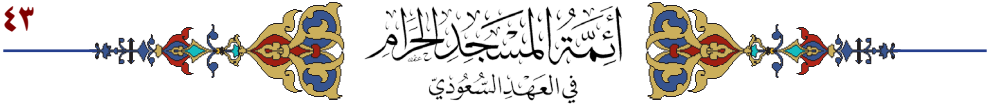 ٤٣
أَئِمَّةُ المَسْجِدِ الحَرَامِ
في العَهْدِ السُّعُودِيّ